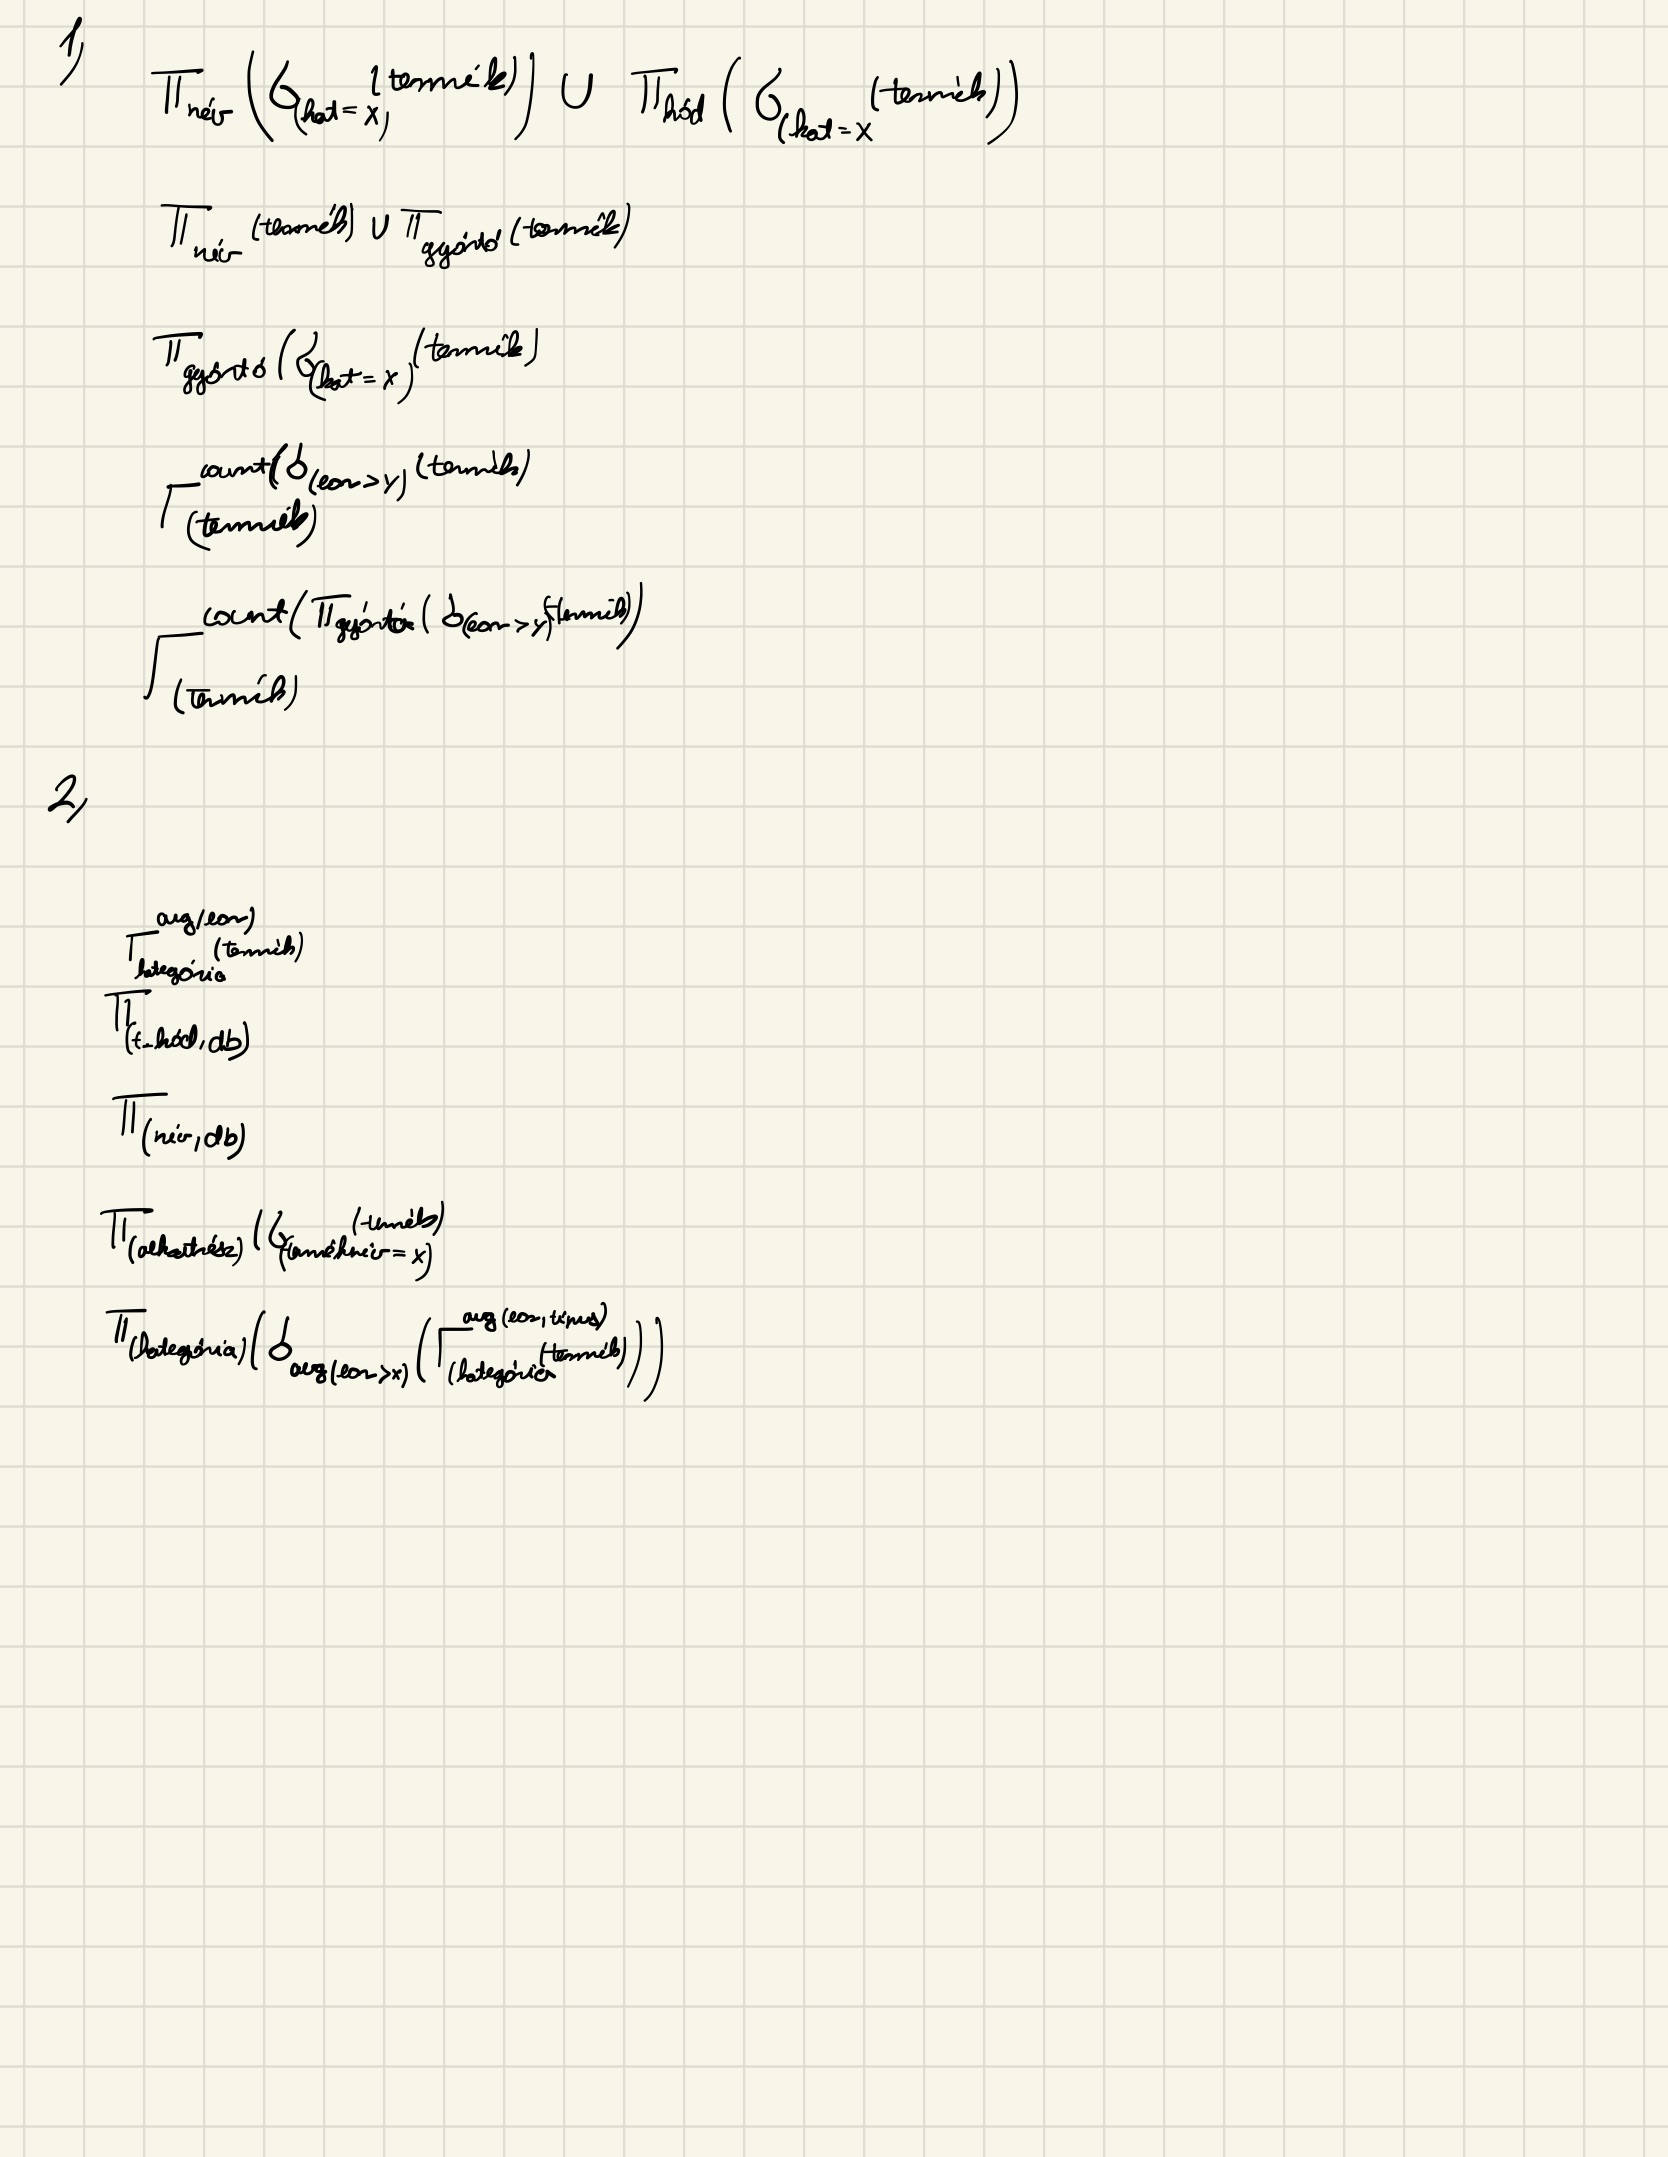 1,
π név (σ (kat = x) (termék)) ∪ π kód (σ (kat = x (termék)))
π név (termék) ∪ π gyártó (termék)
π gyártó (σ (kat = x) (termék)
count(σ (ear > y) (termék)
Γ (termék)
count(π gyártó (σ (ear > y) (termék))
Γ (Termék)
2,
avg(ear)
Γ (termék)
kategória
π (t_kód, db)
π (név, db)
π (alkatrész) (σ (terméknév = x) (termék)
π (kategória) (σ avg(ear > x) (Γ avg(ear, típus) (kategória (termék)))